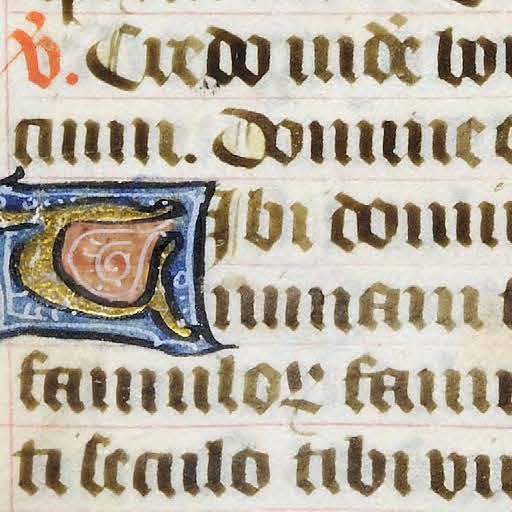 V̓. Credo vidē bo
tium. Domine
Tibi domi
nimam
famuloꝝ famu
ti seculo tibi vi